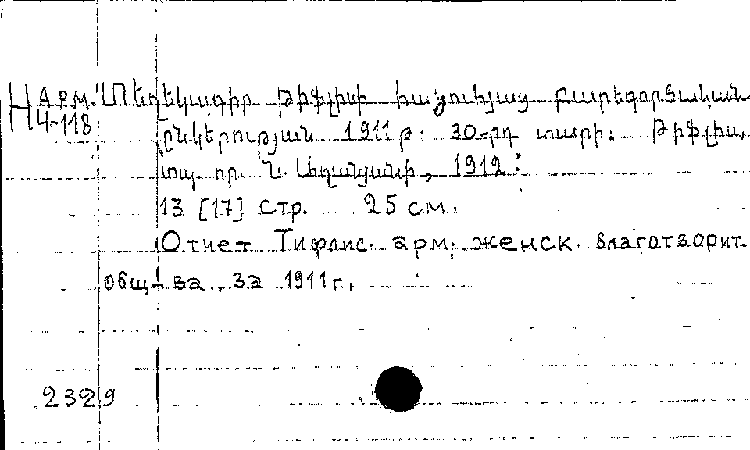 Арм. Տեղեկագիր Թիֆլիսի հայուհյաց բարեգործական
Н 4-118
ընկերության 1911 թ. 30-րդ տարի. Թիֆլիս,
տպ. օր. Ն. Աղանյանի, 1912:
13 [17] стр. 25 см.
Отчет Тифлис. арм. женск. благотворит.
общ-ва за 1911 г.
2329